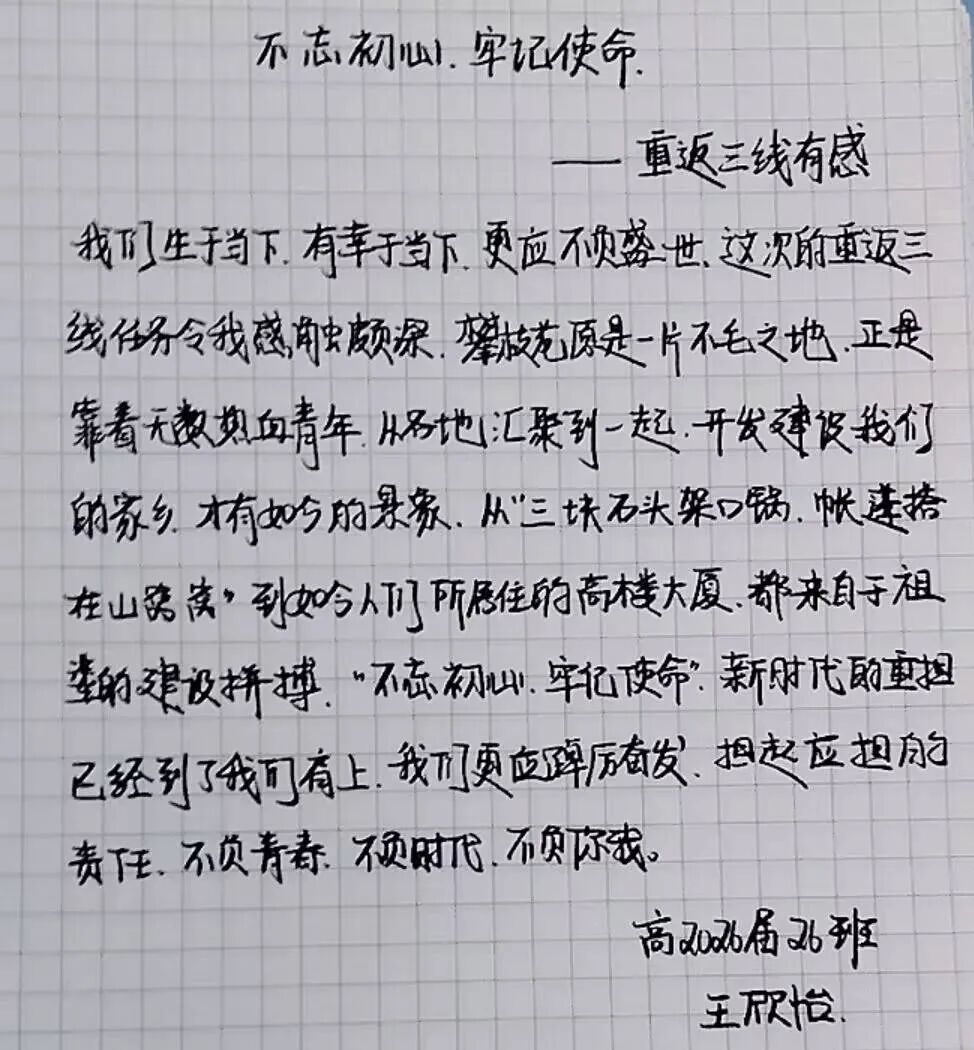 不忘初心、牢记使命.
——重返三线有感
我们生于当下、有幸于当下、更应不负盛世、这次的重返三
线任务令我感触颇深、攀枝花原是一片不毛之地、正是
靠着无数热血青年、从各地汇聚到一起、开发建设我们
的家乡、才有如今的景象、从“三块石头架口锅、帐篷搭
在山窝窝”到如今人们所居住的高楼大厦、都来自于祖
辈的建设拼搏、“不忘初心、牢记使命”、新时代的重担
已经到了我们肩上、我们更应踔厉奋发、担起应担的
责任、不负青春、不负时代、不负你我。
高2026届26班
王欣怡.